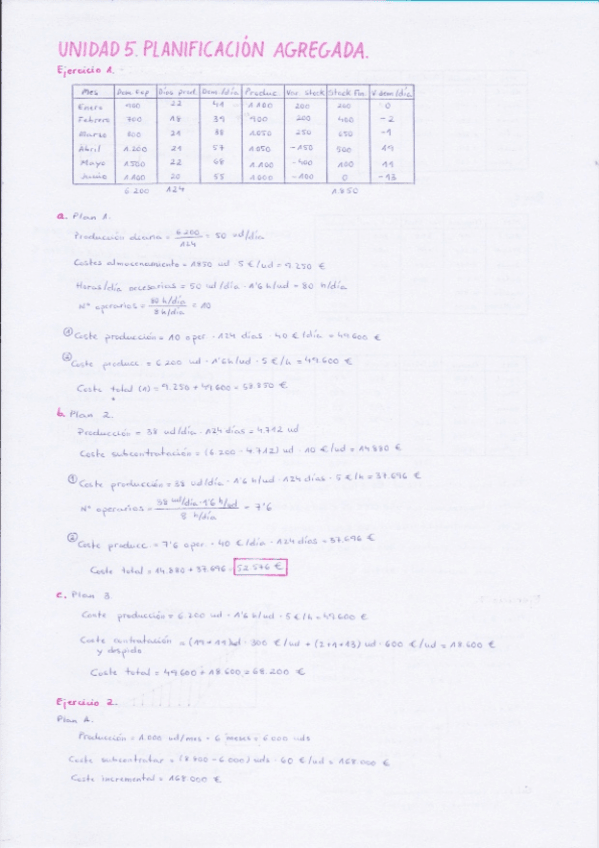 UNIDAD 5. PLANIFICACIÓN AGREGADA.
Ejercicio 1.
Mes Dem. Exp Días prod. Dem./día Produc Var. stock Stock Fin. V dem/día
Enero 900 22 41 1.100 200 200 0
Febrero 700 18 39 900 200 400 -2
Marzo 800 21 38 1.050 250 650 -1
Abril 1.200 21 57 1.050 -150 500 19
Mayo 1.500 22 68 1.100 -400 100 11
Junio 1.100 20 55 1.000 -100 0 -13
6.200 124 1.850
a. Plan 1.
Producción diaria = 6.200 / 124 = 50 ud/día
Costes almacenamiento = 1850 ud · 5 €/ud = 9.250 €
Horas/día necesarias = 50 ud/día · 1'6 h/ud = 80 h/día
Nº operarios = 80 h/día / 8 h/día = 10
① Coste producción = 10 oper. · 124 días · 40 €/día = 49.600 €
② Coste producc = 6.200 ud · 1'6 h/ud · 5 €/h = 49.600 €
Coste total (1) = 9.250 + 49.600 = 58.850 €
b. Plan 2.
Producción = 38 ud/día · 124 días = 4.712 ud
Coste subcontratación = (6.200 - 4.712) ud · 10 €/ud = 14.880 €
① Coste producción = 38 ud/día · 1'6 h/ud · 124 días · 5 €/h = 37.696 €
Nº operarios = 38 ud/día · 1'6 h/ud / 8 h/día = 7'6
② Coste producc = 7'6 oper · 40 €/día · 124 días = 37.696 €
Coste total = 14.880 + 37.696 = 52.576 €
c. Plan 3
Coste producción = 6.200 ud · 1'6 h/ud · 5 €/h = 49.600 €
Coste contratación = (19+11) ud · 300 €/ud + (2+1+13) ud · 600 €/ud = 18.600 €
y despido
Coste total = 49.600 + 18.600 = 68.200 €
Ejercicio 2.
Plan A.
Producción = 1.000 ud/mes · 6 meses = 6.000 uds
Coste subcontratar = (8.800 - 6.000) uds · 60 €/ud = 168.000 €
Coste incremental = 168.000 €